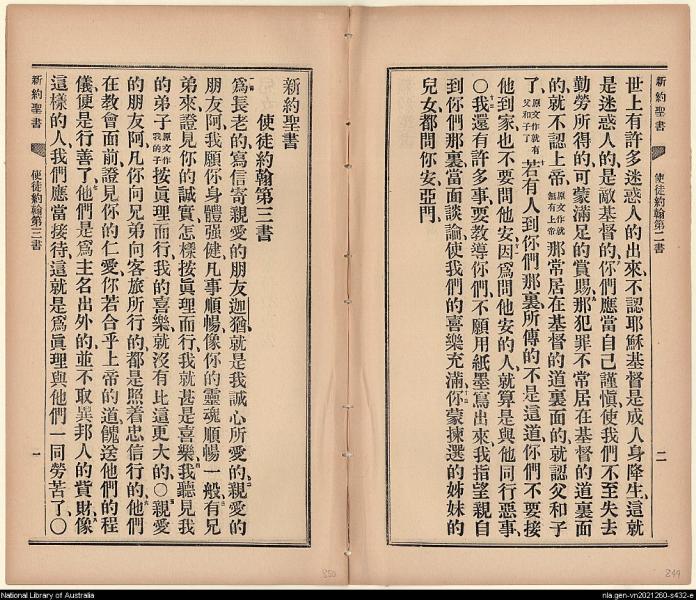 新約聖書 使徒約翰第二書 二
世上有許多迷惑人的出來、不認耶穌基督是成人身降生、這就
是迷惑人的、是敵基督的、你們應當自己謹愼、使我們不至失去
勤勞所得的、可蒙滿足的賞賜、那犯罪不常居在基督的道裏面
的、就不認上帝、原文作就無有上帝那常居在基督的道裏面的、就認父和子
了、原文作就有父和子了若有人到你們那裏、所傳的不是這道、你們不要接
他到家、也不要問他安、因爲問他安的人、就算是與他同行惡事、
○我還有許多事、要教導你們、不願用紙墨寫出來、我指望親自
到你們那裏、當面談論、使我們的喜樂充滿、你蒙揀選的姊妹的
兒女都問你安、亞門、
新約聖書
使徒約翰第三書
爲長老的、寫信寄親愛的朋友迦猶、就是我誠心所愛的、親愛的
朋友阿、我願你身體强健、凡事順暢、像你的靈魂順暢一般、有兄
弟來證見你的誠實、怎樣按眞理而行、我就甚是喜樂、我聽見我
的弟子原文作我的子按眞理而行、我的喜樂、就沒有比這更大的、○親愛
的朋友阿、凡你向兄弟向客旅所行的、都是照着忠信行的、他們
在教會面前、證見你的仁愛、你若合乎上帝的道、餽送他們的程
儀、便是行善了、他們是爲主名出外的、並不取異邦人的貲財、像
這樣的人、我們應當接待、這就是爲眞理與他們一同勞苦了、○
新約聖書 使徒約翰第三書 一
850
849
National Library of Australia
nla.gen-vn2021260-s432-e